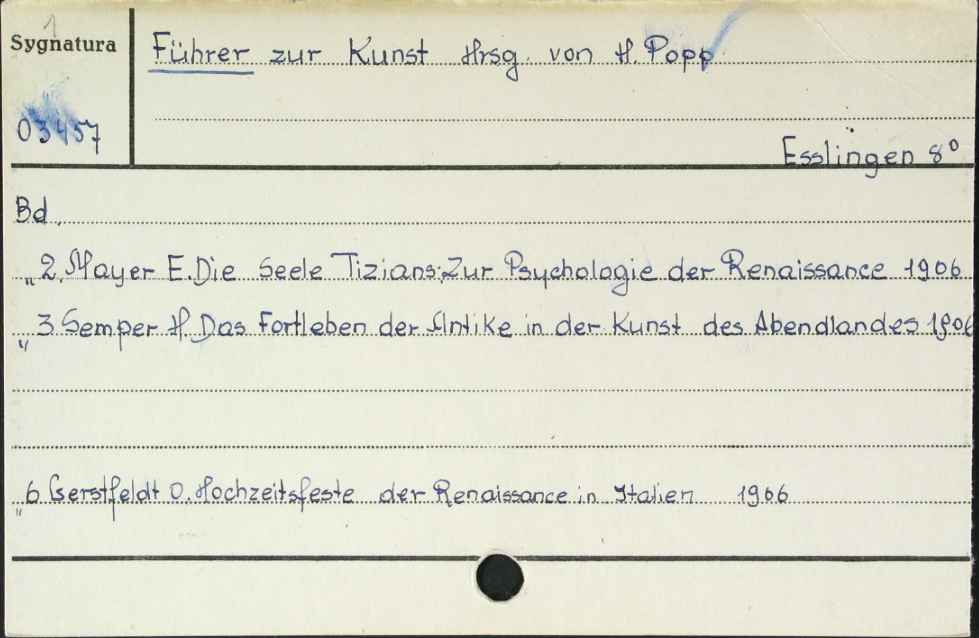 1
Sygnatura
03457
Führer zur Kunst Hrsg. von H. Popp
Esslingen 8°
Bd.
" 2. Mayer E. Die Seele Tizians: Zur Psychologie der Renaissance 1906
" 3 Semper H. Das Fortleben der Antike in der Kunst des Abendlandes 1906
" 6 Gerstfeldt O. Hochzeitsfeste der Renaissance in Italien 1906